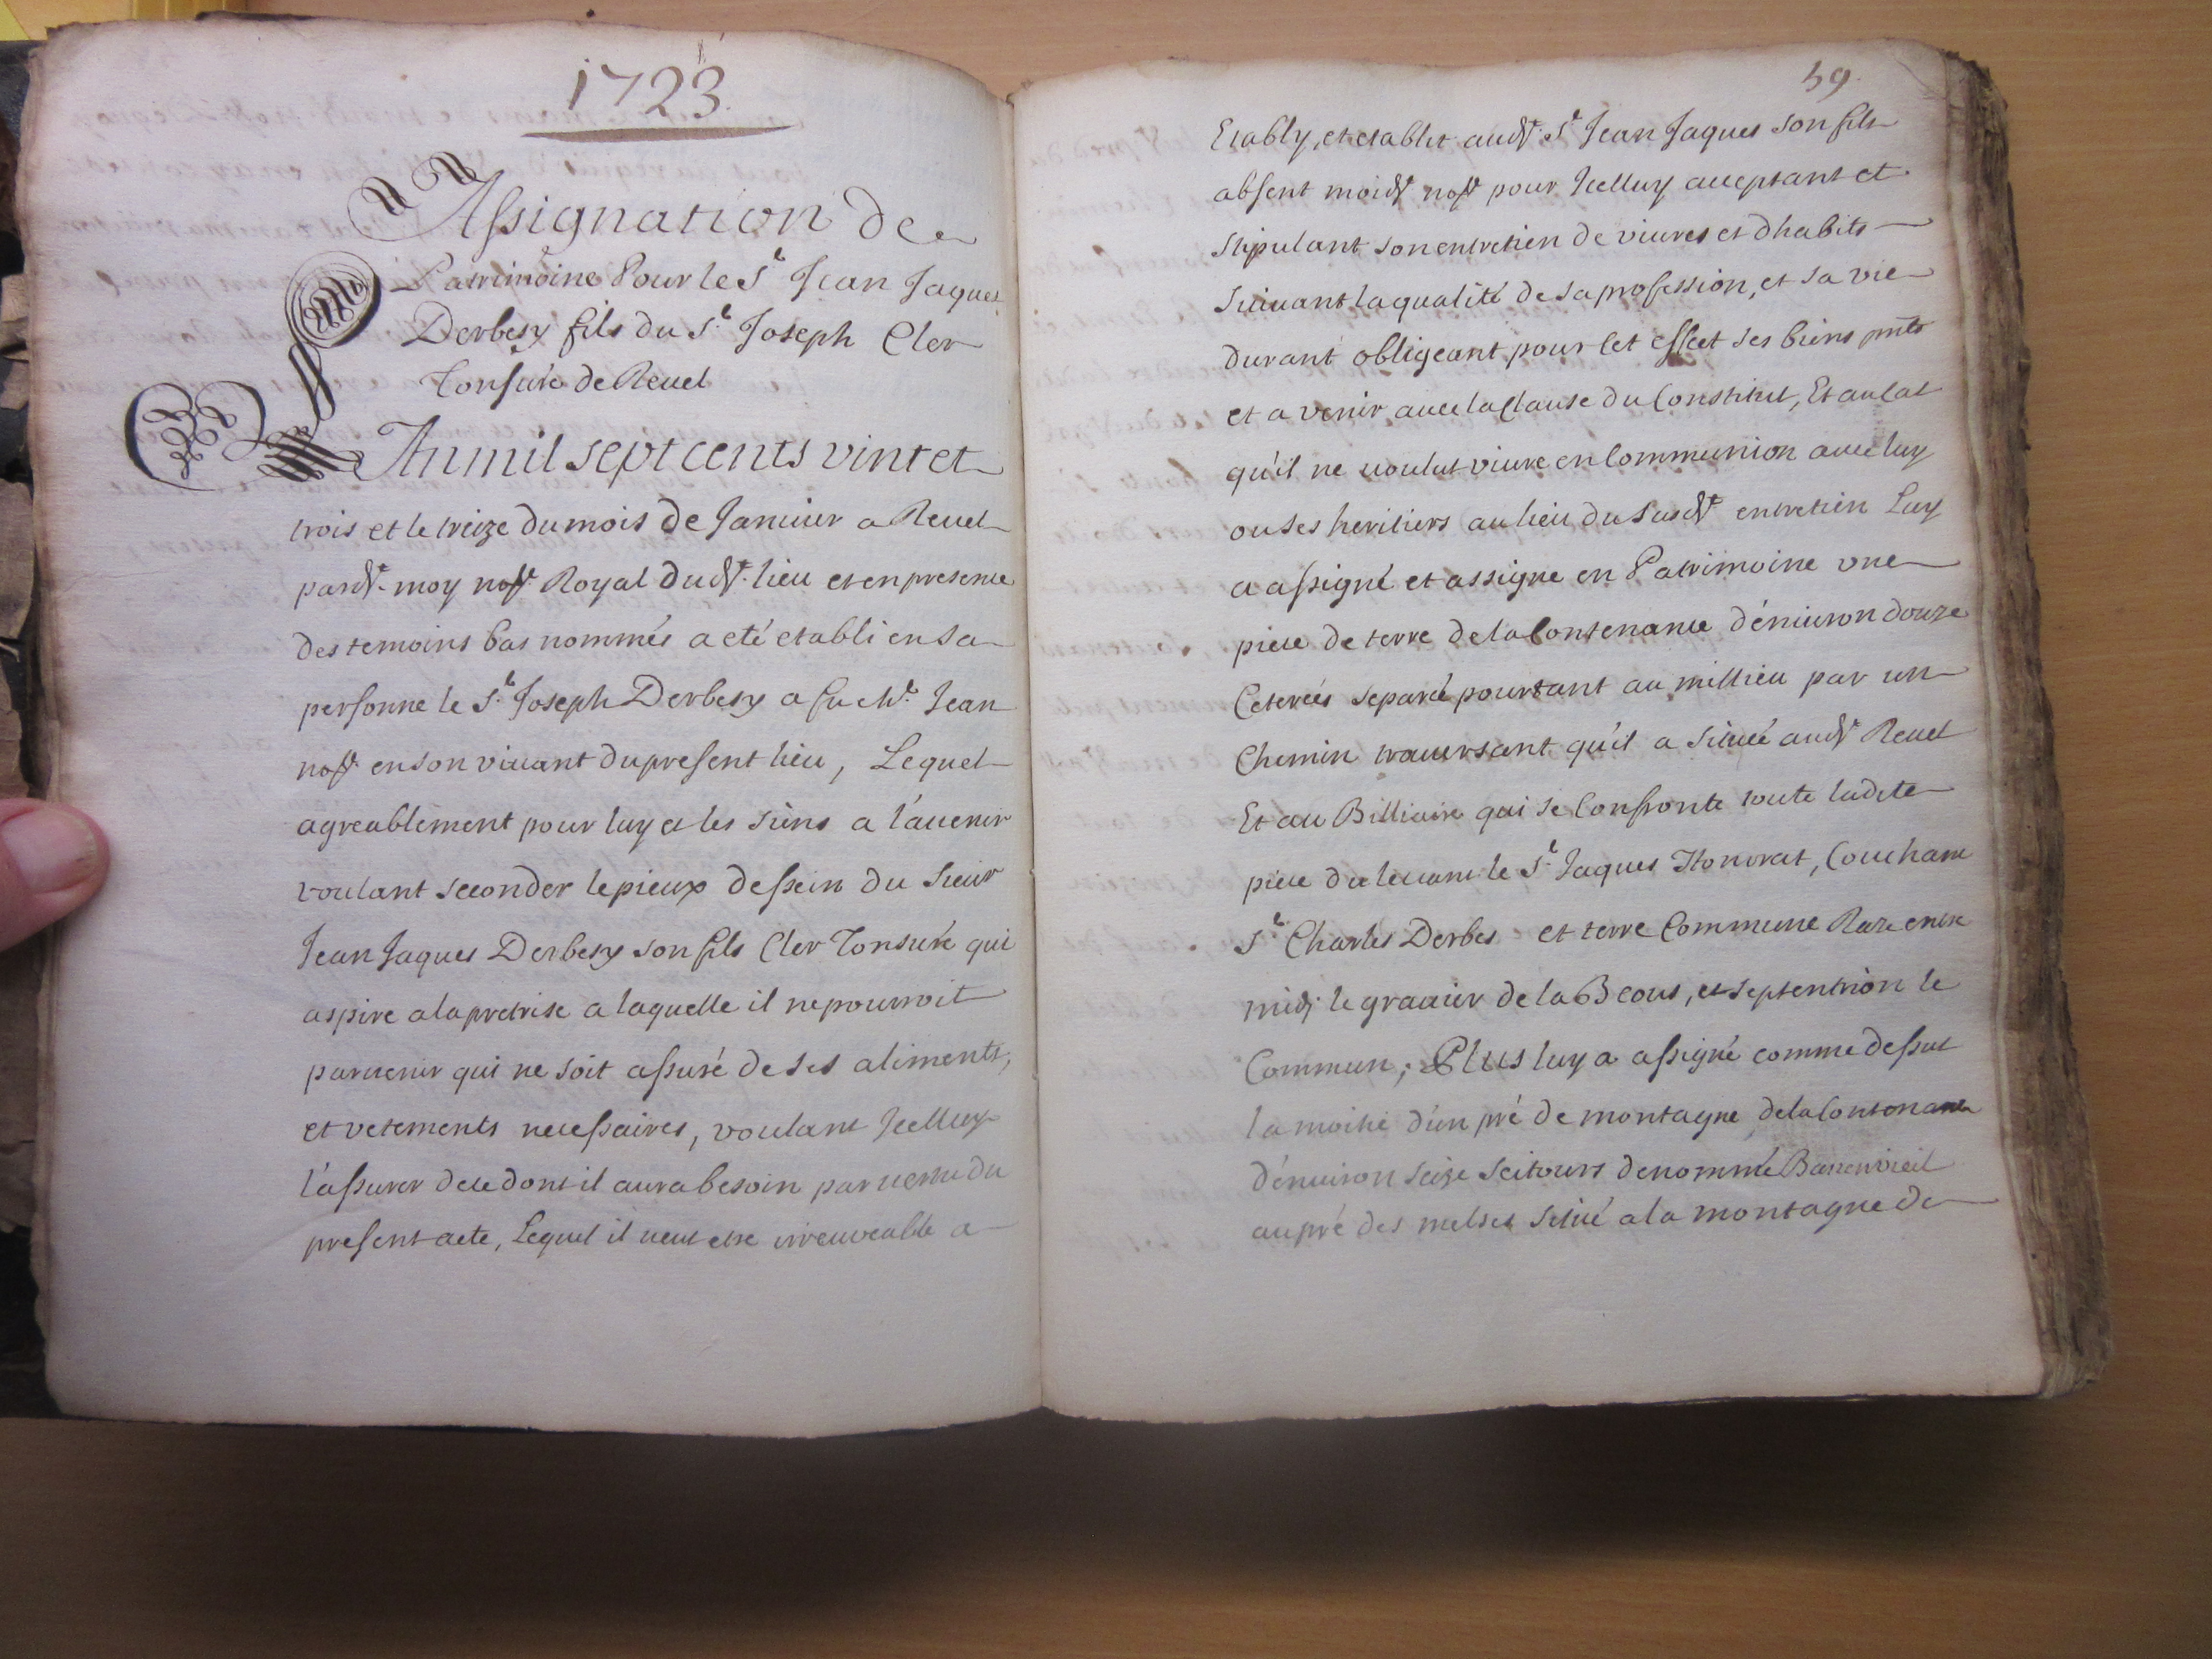 1723.
Assignation de
Patrimoine Pour le Sr Jean Jaques
Derbesy fils du Sr Joseph Cler
Tonsuré de Revel
An mil sept cents vint et
trois et le treize du mois de Janvier a Revel
pardt moy nore Royal dudt lieu et en presence
des temoins bas nommés a eté etabli en sa
personne le Sr Joseph Derbesy a feu Me Jean
nore en son vivant du present lieu, Lequel
agreablement pour luy et les siens a l'avenir
voulant seconder le pieux dessein du Sieur
Jean Jaques Derbesy son fils Cler Tonsuré qui
aspire a la pretrise a laquelle il ne pourroit
parvenir qui ne soit assuré de ses aliments,
et vetements necessaires, voulant Jcelluy
l'assurer de ce dont il aura besoin par vertu du
present acte, Lequel il veut etre irrevocable a
59.
Etably, et etablit audt Sr Jean Jaques son fils
absent moidt nore pour Jcelluy acceptant et
stipulant son entretien de vivres et dhabits
suivant la qualité de sa profession, et sa vie
durant obligeant pour cet effet ses biens pnts
et a venir avec la clause du Constitut, Et au cas
qu'il ne voulut vivre en Communion avec luy
ou ses heritiers au lieu du susdt entretien Luy
a assigné et assigne en Patrimoine une
piece de terre de la Contenance d'environ douze
Ceterées separée pourtant au millieu par un
Chemin traversant qu'il a située audt Revel
Et au Billiaire qui se Confronte toute ladite
piece du levant le Sr Jaques Honorat, Couchant
Sr Charles Derbes et terre Commune Raze entre
midj le gravier de la Beous, et septentrion le
Commun; Plus luy a assigné comme dessus
la moitié d'un pré de montagne de la Contenance
d'environ seize seitours denommé
au pré des melses situé a la montagne de